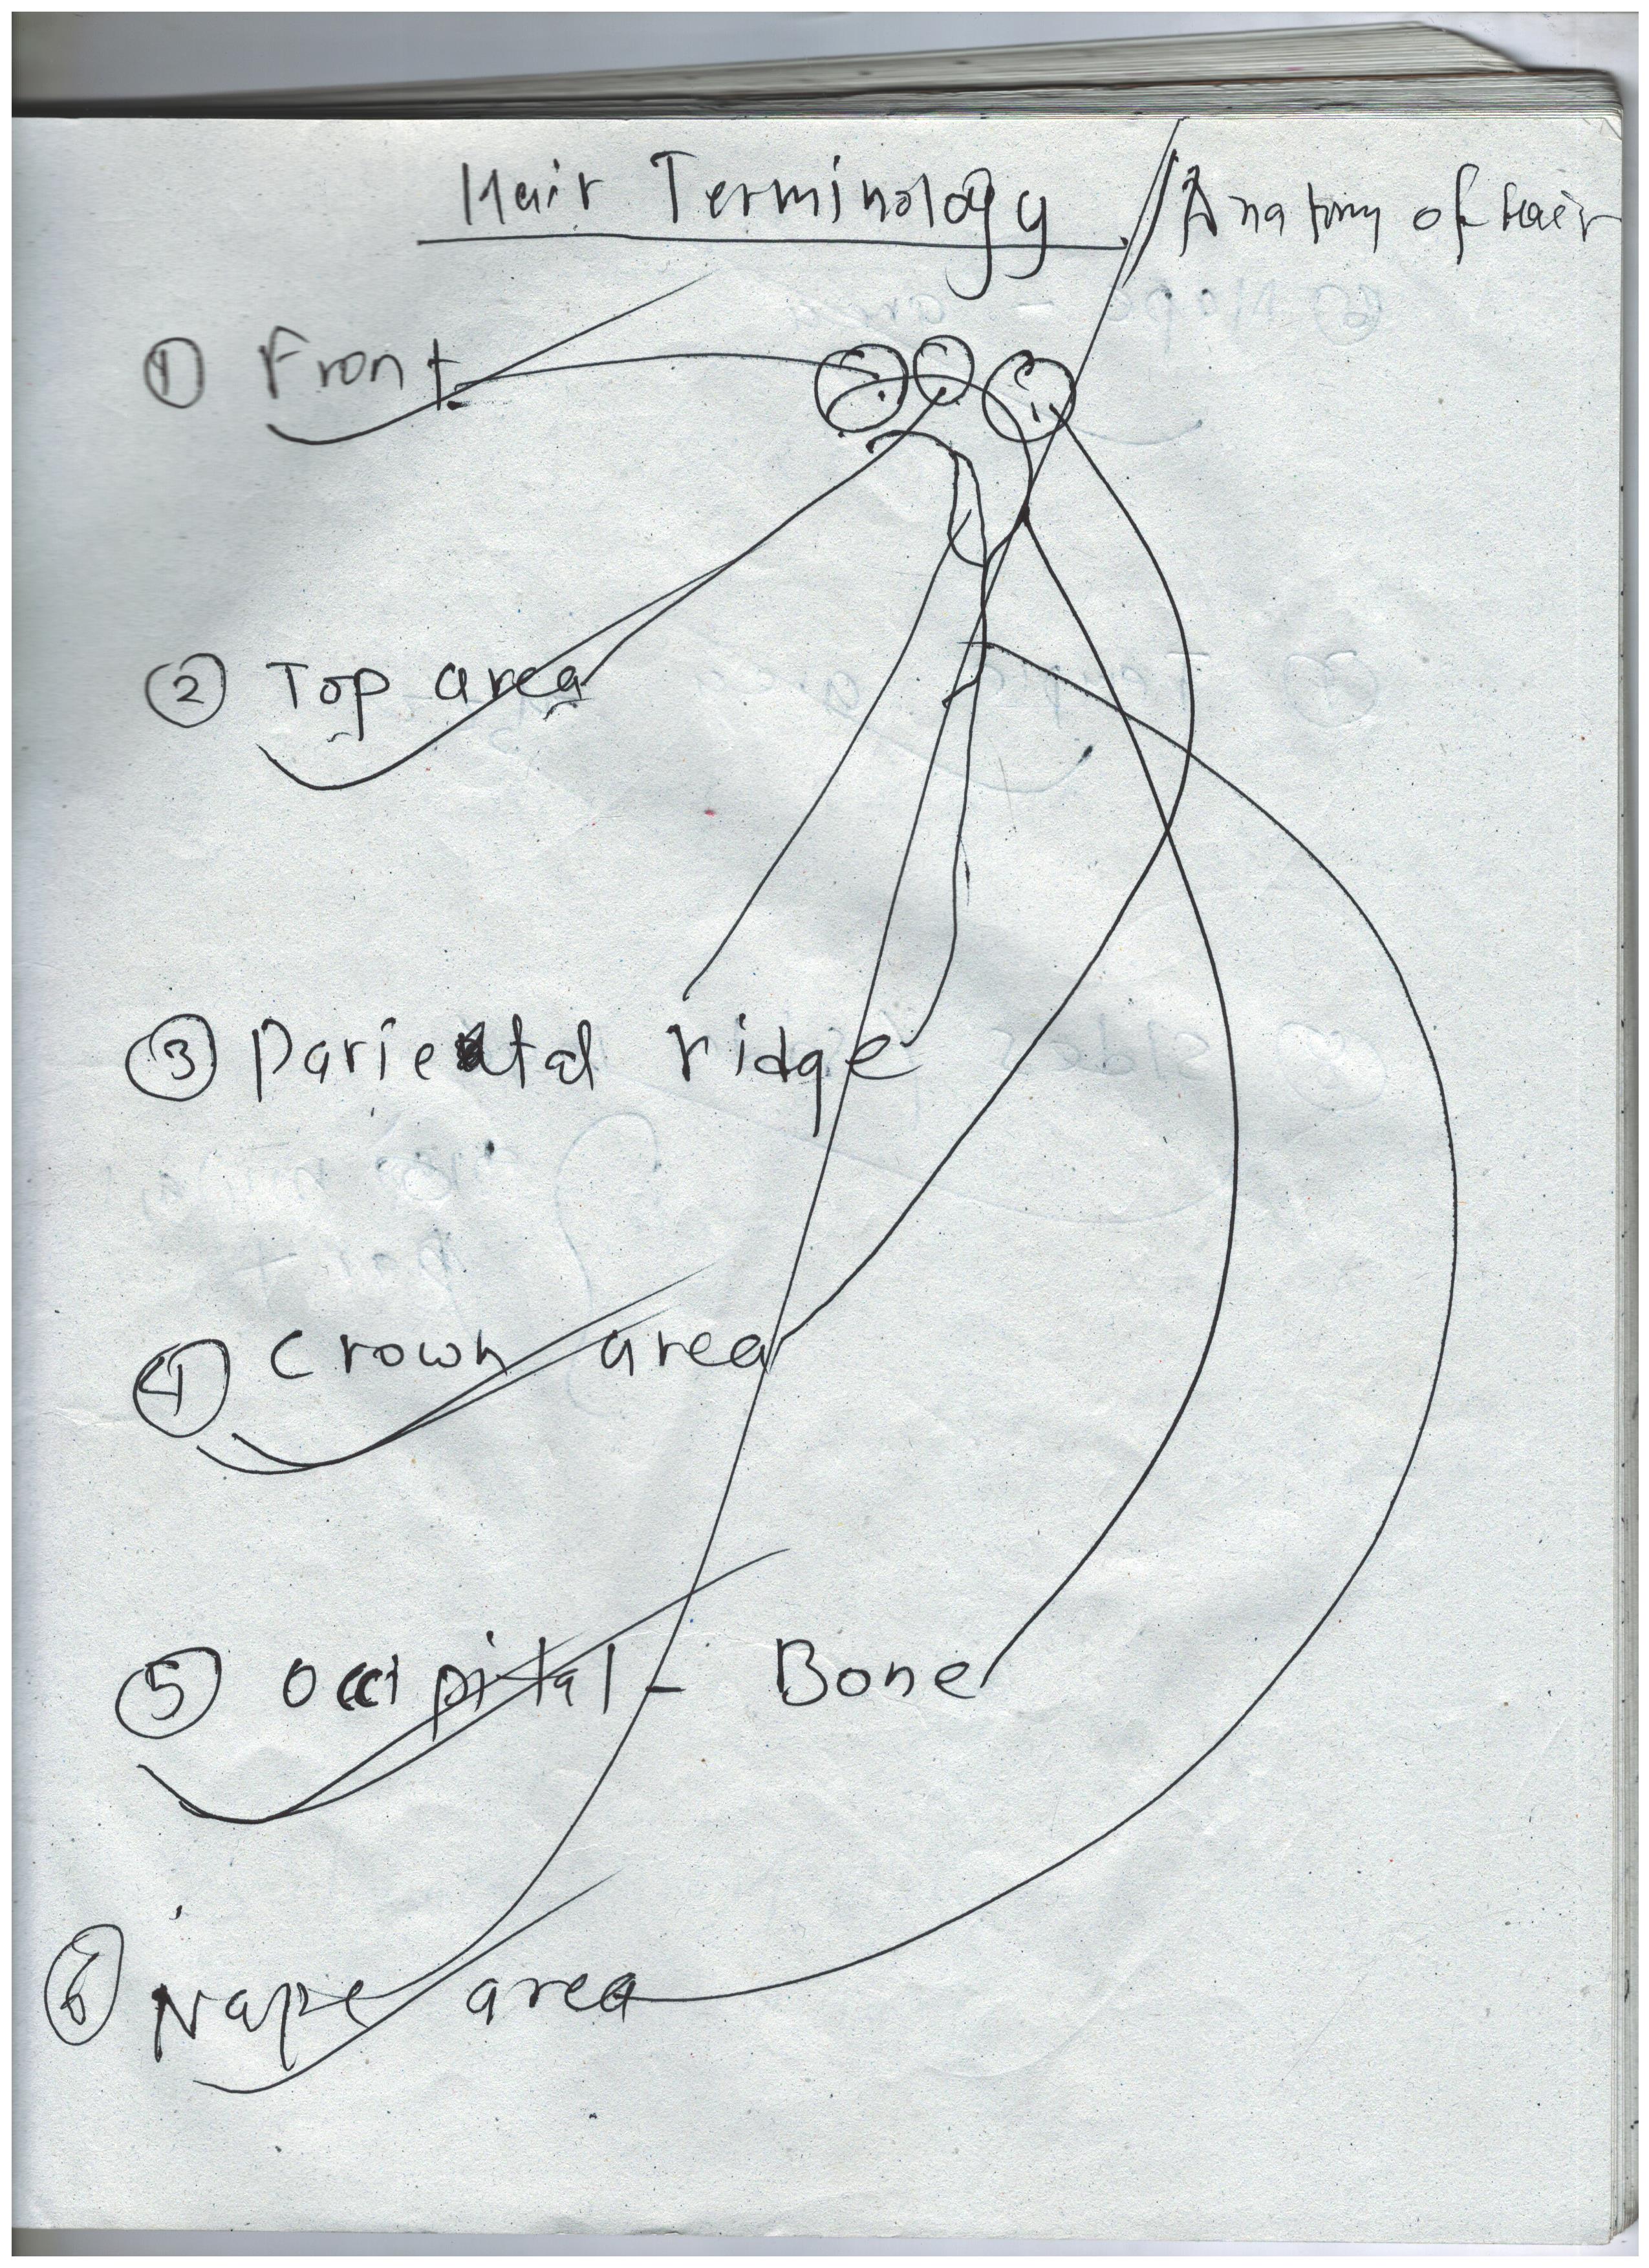 Hair Terminology / Anatomy of hair
① Front
② Top area
③ Parietal ridge
④ Crown area
⑤ Occipital - Bone
⑥ Nape area